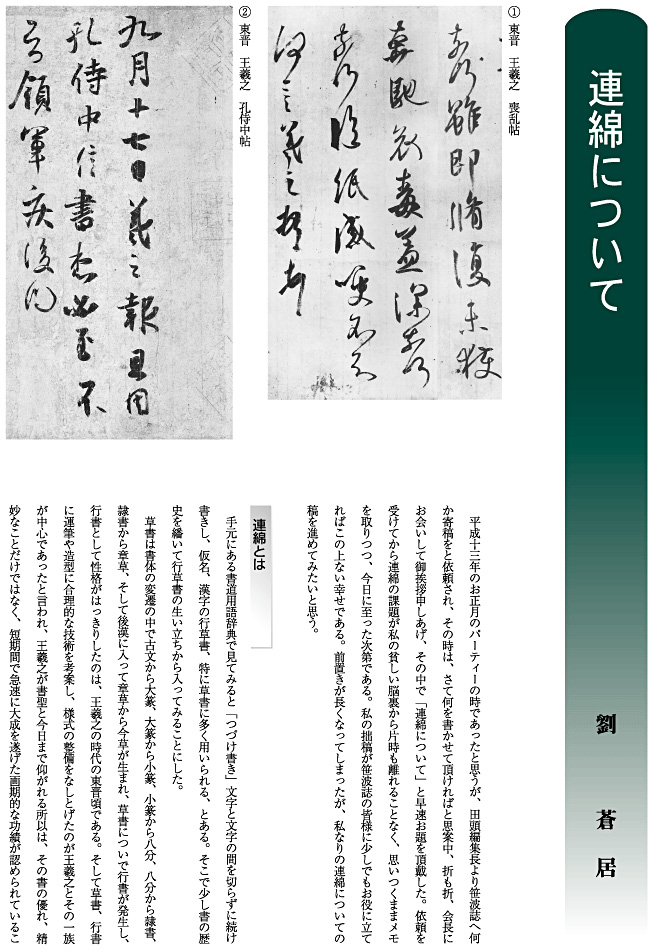 連綿について
劉蒼居
① 東晋　王羲之　喪乱帖
哀labels雖即脩復未獲
奔馳哀毒益深奈何
奈何臨紙感哽不知
何言羲之頓首
② 東晋　王羲之　孔侍中帖
九月十七日羲之報且因
孔侍中信書想必至不
知領軍疾後問
平成十三年のお正月のパーティーの時であったと思うが、田頭編集長より笹波誌へ何
か寄稿をと依頼され、その時は、さて何を書かせて頂ければと思案中、折も折、会長に
お会いして御挨拶申しあげ、その中で「連綿について」と早速お題を頂戴した。依頼を
受けてから連綿の課題が私の貧しい脳裏から片時も離れることなく、思いつくままメモ
を取りつつ、今日に至った次第である。私の拙稿が笹波誌の皆様に少しでもお役に立て
ればこの上ない幸せである。前置きが長くなってしまったが、私なりの連綿についての
稿を進めてみたいと思う。
連綿とは
手元にある書道用語辞典で見てみると「つづけ書き」文字と文字の間を切らずに続け
書きし、仮名、漢字の行草書、特に草書に多く用いられる、とある。そこで少し書の歴
史を繙いて行草書の生い立ちから入ってみることにした。
草書は書体の変遷の中で古文から大篆、大篆から小篆、小篆から八分、八分から隷書、
隷書から章草、そして後漢に入って章草から今草が生まれ、草書について行書が発生し、
行書として性格がはっきりしたのは、王羲之の時代の東晋頃である。そして草書、行書
に運筆や造型に合理的な技術を考案し、様式の整備をなしとげたのが王羲之とその一族
が中心であったと言われ、王羲之が書聖と今日まで仰がれる所以は、その書の優れ、精
妙なことだけではなく、短期間で急速に大成を遂げた画期的な功績が認められているこ